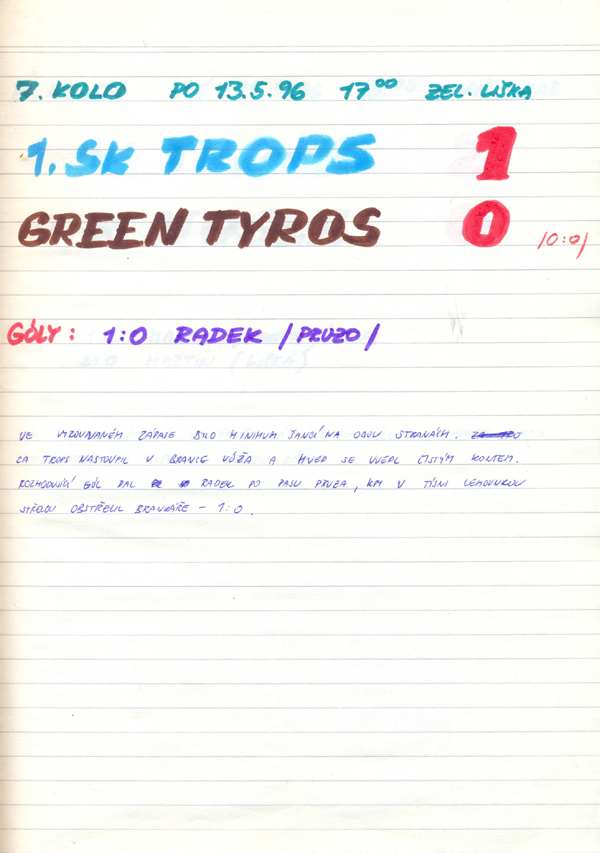 7. KOLO PO 13.5.96 17⁰⁰ ZEL. LIŠKA
1. SK TROPS 1
GREEN TYROS 0 /0:0/
GÓLY: 1:0 RADEK /PRUZO/
2:0 MARTIN (LIŠKA)
VE VYROVNANÉM ZÁPASE BYLO MINIMUM ŠANCÍ NA OBOU STRANÁCH.
ZA TROPS NASTOUPIL V BRANCE VÓŽA A HNED SE UVEDL ČISTÝM KONTEM.
ROZHODUJÍCÍ GÓL DAL RADEK PO PASU PRUZA, KDY V TÍSNI
STŘELOU OBSTŘELIL BRANKÁŘE – 1:0.